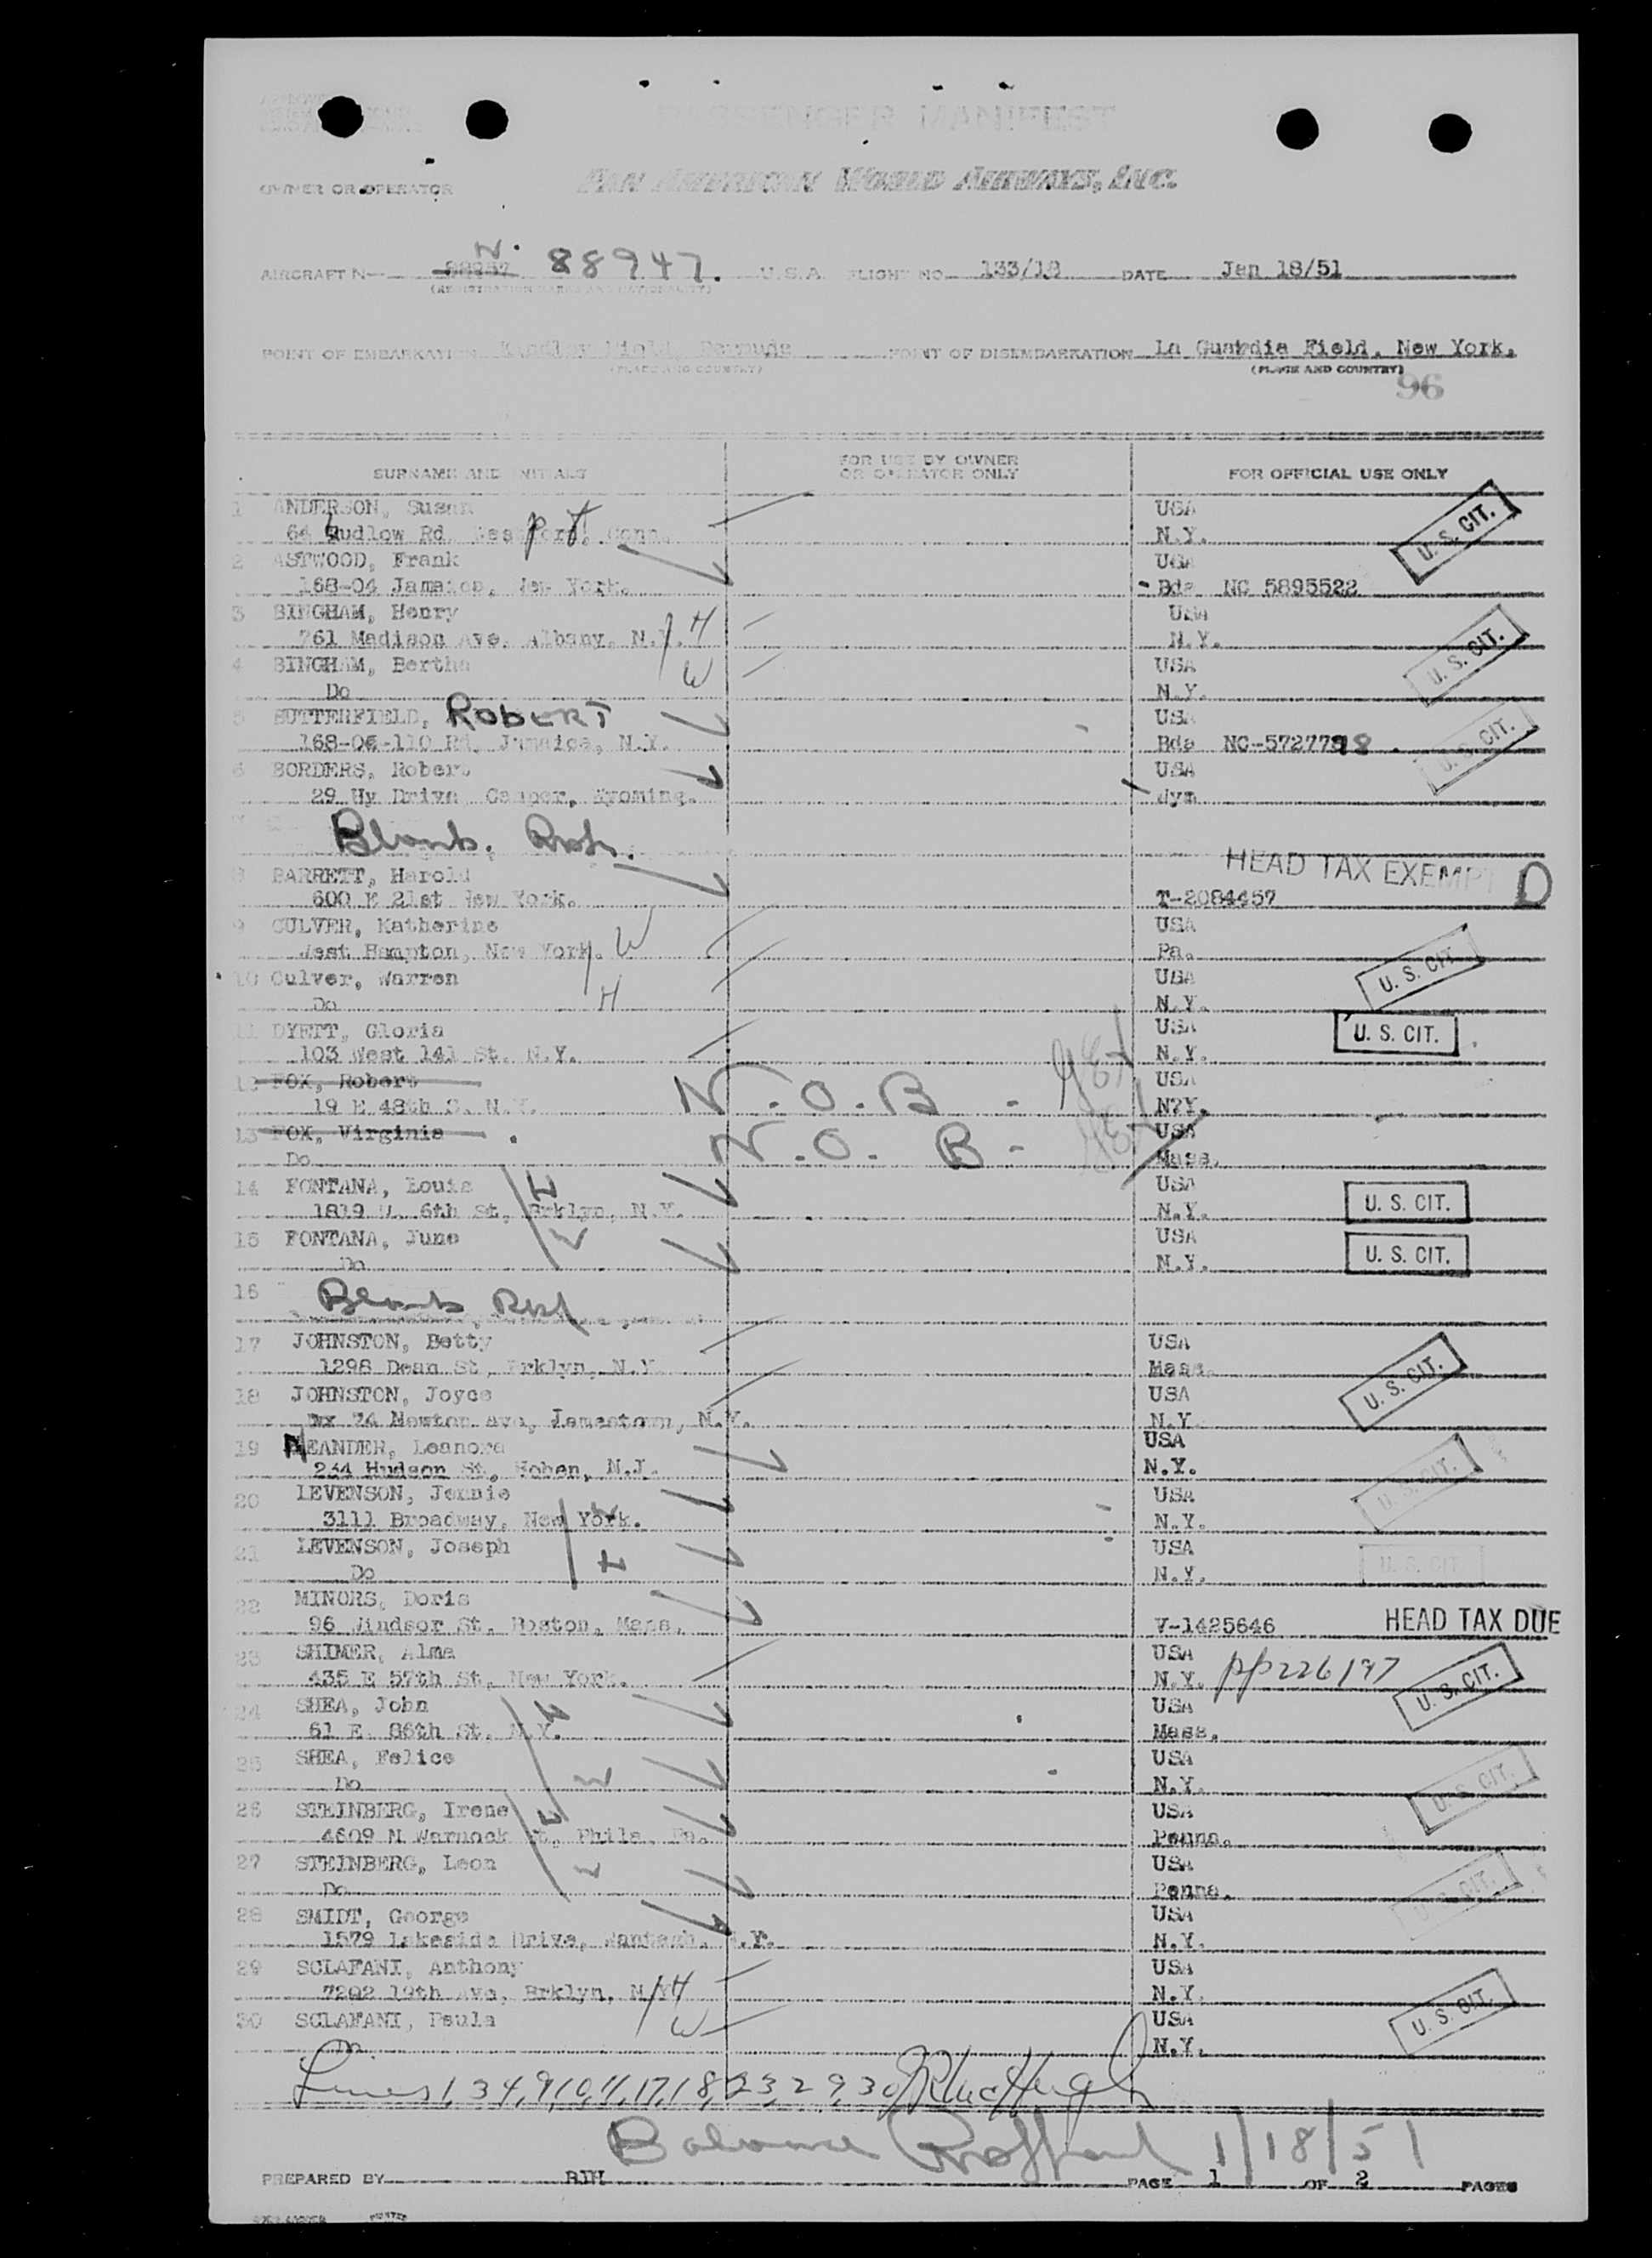 PASSENGER MANIFEST
OWNER OR OPERATOR PAN AMERICAN WORLD AIRWAYS, INC.
AIRCRAFT N- N. 88947. U.S.A. FLIGHT NO 133/18 DATE Jan 18/51
POINT OF EMBARKATION Kindley Field, Bermuda POINT OF DISEMBARKATION La Guardia Field, New York.
(PLACE AND COUNTRY) (PLACE AND COUNTRY)
96
SURNAME AND INITIALS FOR USE BY OWNER OR OPERATOR ONLY FOR OFFICIAL USE ONLY
1 ANDERSON, Susan USA U. S. CIT.
64 Ludlow Rd. Westport, Conn. N.Y.
2 ASTWOOD, Frank USA
168-04 Jamaica, New York. Bda NC 5895522
3 BINGHAM, Henry USA
761 Madison Ave. Albany, N.Y. H N.Y. U. S. CIT.
4 BINGHAM, Bertha W USA
Do N.Y.
5 BUTTERFIELD, ROBERT USA
168-06-110 Rd, Jamaica, N.Y. Bda NC-5727798 U. S. CIT.
6 BORDERS, Robert USA
29 Uy Drive, Casper, Wyoming. Wym
Blank.
HEAD TAX EXEMPT D
8 BARRETT, Harold
600 E 21st New York. T-2084457
9 CULVER, Katherine USA
West Hampton, New York. W Pa. U. S. CIT
10 Culver, Warren USA
Do H N.Y.
11 DYETT, Gloria USA U. S. CIT.
103 West 141 St. N.Y. N.Y.
12 FOX, Robert N.O.B - USA
19 E 48th S. N.Y. N?Y.
13 FOX, Virginia N.O.B - USA
Do Mass.
14 FONTANA, Louis USA U. S. CIT.
1819 W. 6th St, Brklyn, N.Y. N.Y.
15 FONTANA, June USA U. S. CIT.
Do N.Y.
16 Blank
17 JOHNSTON, Betty USA
1298 Dean St, Brklyn, N.Y. Mass. U. S. CIT.
18 JOHNSTON, Joyce USA
74 Newton Ave, Jamestown, N.Y. N.Y.
19 NEANDER, Leanora USA
234 Hudson St, Hoben, N.J. N.Y. U. S. CIT.
20 LEVENSON, Jennie USA
3111 Broadway, New York. N.Y.
21 LEVENSON, Joseph USA U. S. CIT
Do N.Y.
22 MINORS, Doris
96 Windsor St. Boston, Mass. V-1425646 HEAD TAX DUE
23 SHIMER, Alma USA
435 E 57th St, New York. N.Y. pp226197 U. S. CIT.
24 SHEA, John USA
61 E. 86th St. N.Y. Mass.
25 SHEA, Felice USA
Do N.Y. U. S. CIT.
26 STEINBERG, Irene USA
4609 N Warnock St, Phila. Pa. Penna.
27 STEINBERG, Leon USA
Do Penna. U. S. CIT.
28 SMIDT, George USA
1579 Lakeside Drive, Wantagh, N.Y. N.Y.
29 SCLAFANI, Anthony USA
7202 19th Ave, Brklyn, N.Y. H N.Y. U. S. CIT.
30 SCLAFANI, Paula W USA
Do. N.Y.
Lines 1, 3 4, 9, 10, 11, 17, 18, 23, 29, 30
Balance 1/18/51
PREPARED BY PAGE 1 OF 2 PAGES